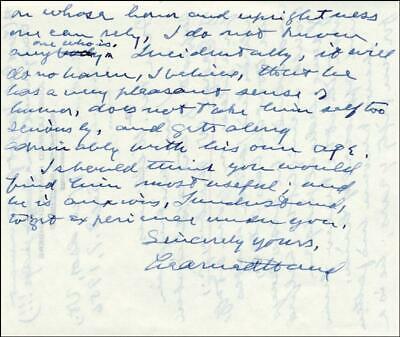 on whose honor and uprightness
one can rely, I do not know
any one who is.
Incidentally, it will
do no harm, I believe, that he
has a very pleasant sense of
humor, does not take him self too
seriously, and gets along
admirably with his own age.
I should think you would
find him most useful; and
he is anxious, I understand,
to get experience under you.
Sincerely yours,
Learned Hand